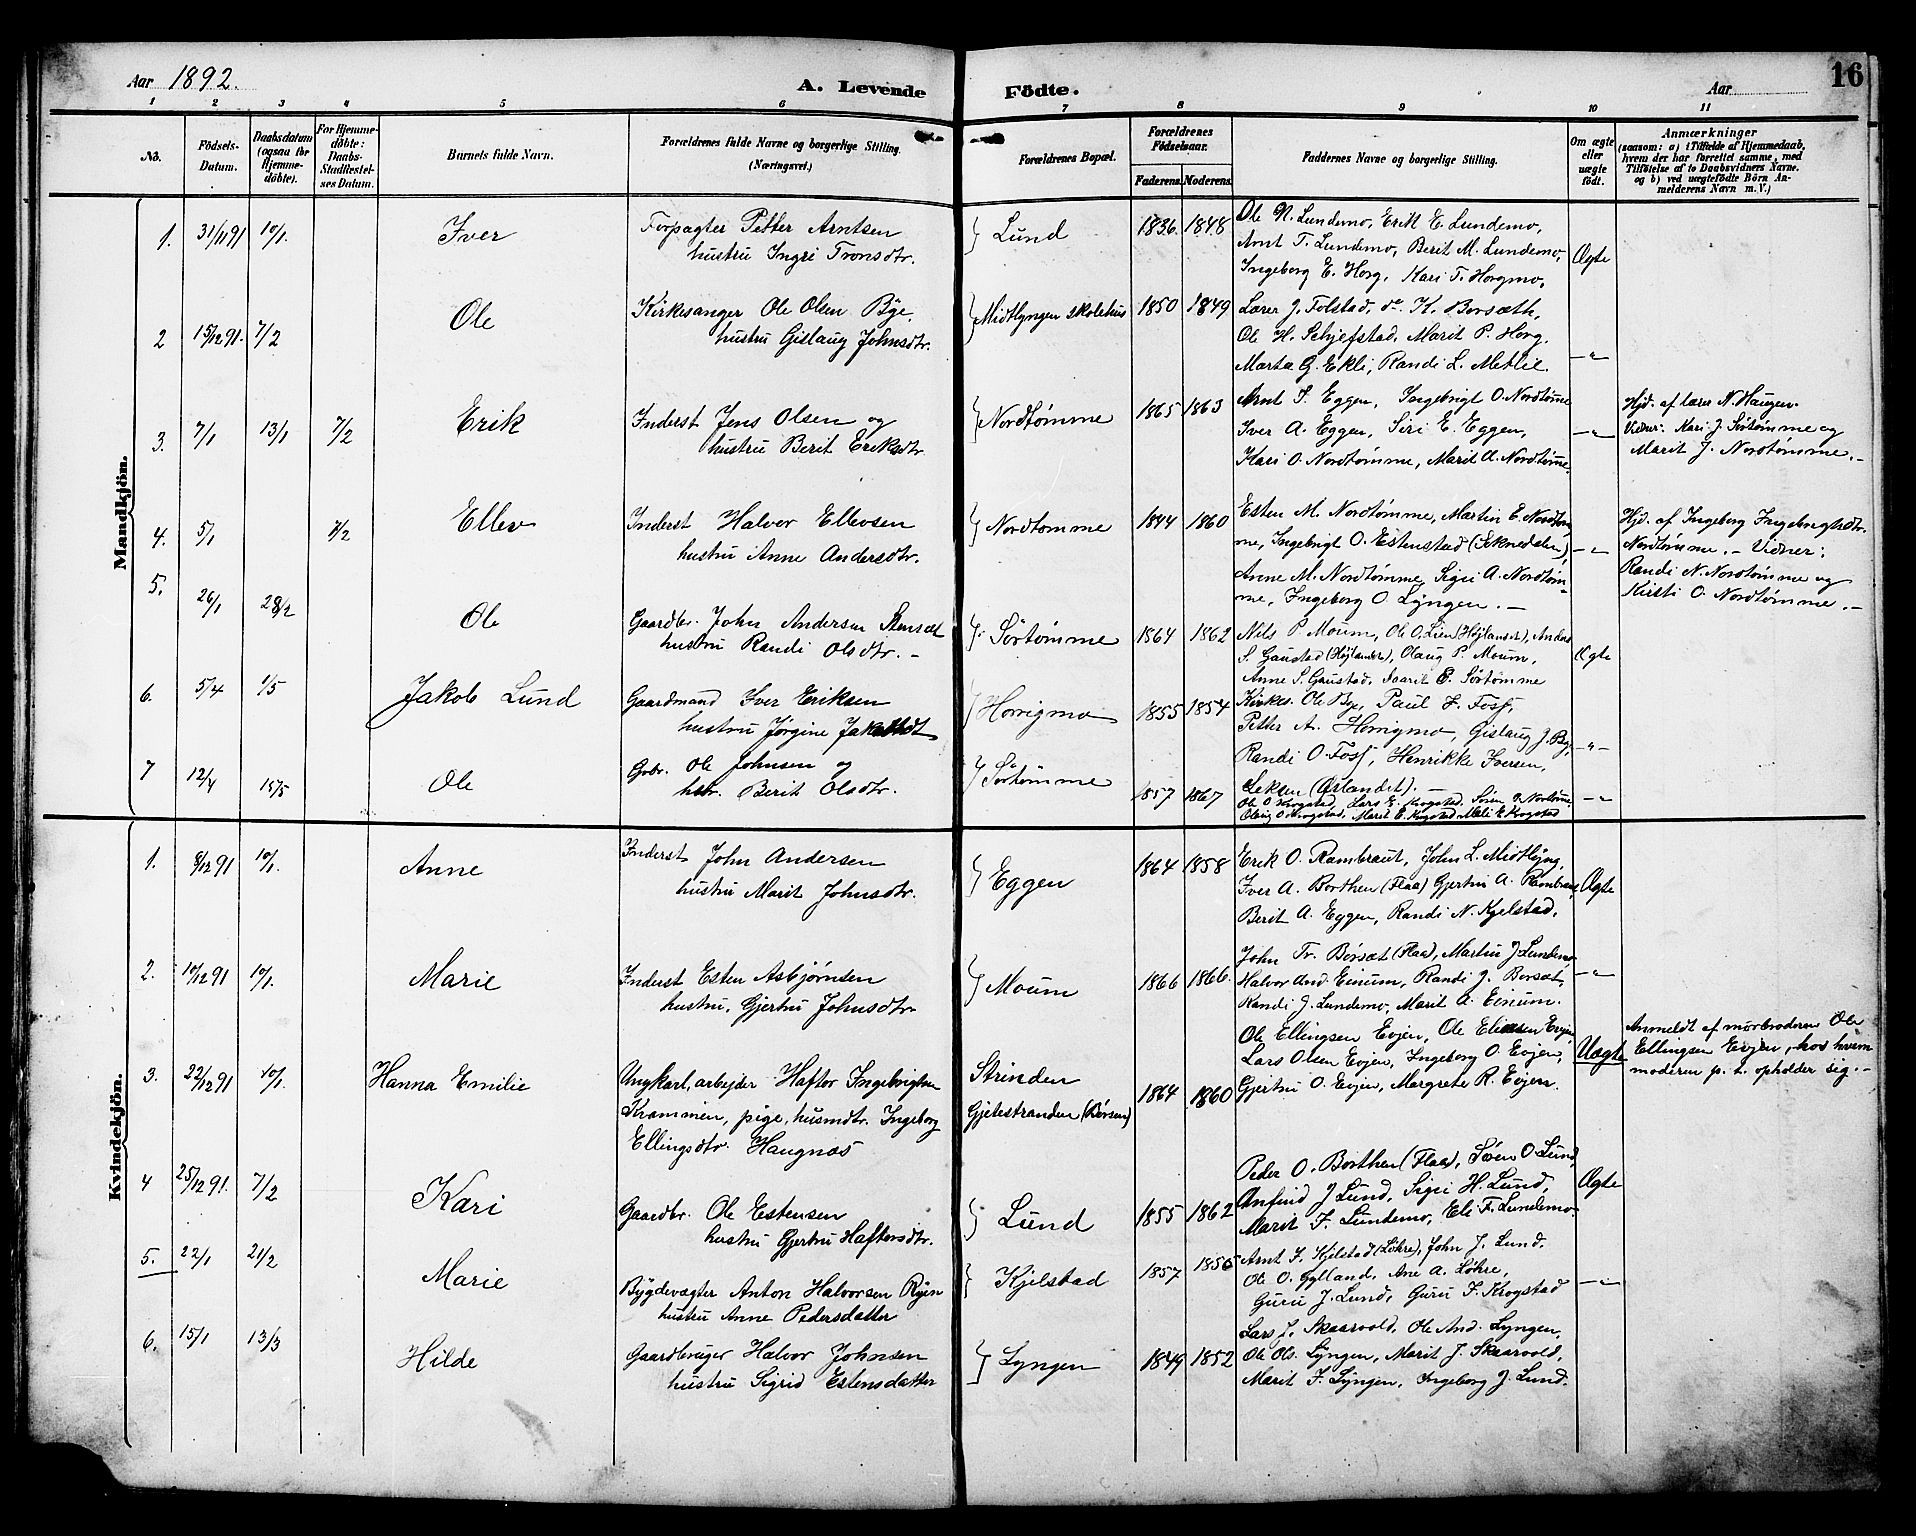 Aar 1892.
A. Levende Födte.
Aar
16
1 2 3 4 5 6 7 8 9 10 11
No.
Födsels-Datum.
Daabsdatum (ogsaa for Hjemme-döbte).
For Hjemme-döbte: Daabs-Stadfæstelses Datum.
Barnets fulde Navn.
Forældrenes fulde Navne og borgerlige Stilling.
(Næringsvei.)
Forældrenes Bopæl.
Forældrenes Födselsaar.
Faderens. Moderens.
Faddernes Navne og borgerlige Stilling.
Om ægte eller uægte födt.
Anmærkninger
(saasom: a) i Tilfælde af Hjemmedaab, hvem der har forrettet samme, med Tilföielse af to Daabsvidners Navne. og b) ved uægtefödte Börn Anmelderens Navn m. V.)
Mandkjön.
1. 31/11 91 10/1. Iver
Forpagter Petter Arntsen
hustru Ingri Tronsdtr.
Lund 1836. 1848
Ole N. Lundemo, Erik E. Lundemo,
Arnt T. Lundemo, Berit M. Lundemo,
Ingeborg E. Horg, Kari T. Horgmo.
Ægte
2 15/12 91. 7/2 Ole
Kirkesanger Ole Olsen Bye,
hustru Gislaug Johnsdtr.
Midtlyngen skolehus 1850 1849
Lærer J. Folstad, do K. Borsæth,
Ole H. Schjefstad, Marit P. Horg.
Marta G. Ekli, Randi L. Methlie.
—"—
3. 7/1 13/1 7/2 Erik
Inderst Jens Olsen og
hustru Berit Eriksdtr.
Nordtømme 1865 1863
Arnt I. Eggen, Ingebrigt O. Nordtømme
Iver A. Eggen, Siri E. Eggen,
Kari O. Nordtømme, Marit A. Nordtømme.
—"—
Hjd. af lærer N. Haugen.
Vidner: Kari J. Sörtømme og
Marit J. Nordtømme.—
4. 5/1 7/2 Ellev
Inderst Halvor Ellevsen
hustru Anne Andersdtr.
Nordtømme 1844 1860
Esten M. Nordtømme, Martin E. Nordtøm-
me, Ingebrigt O. Estenstad (Soknedalen),
Anne M. Nordtømme, Sigri A. Nordtøm-
me, Ingeborg O. Lyngen.—
—"—
Hjd. af Ingeborg Ingebrigtsdtr.
Nordtømme.— Vidner:
Randi N. Nordtømme og
Kirsti O. Nordtømme.—
5. 26/1 28/2 Ole
Gaardbr. John Andersen Stensæt
hustru Randi Olsdtr.—
Sörtømme 1864 1862
Nils P. Moum, Ole O. Lien (Højlandet), Anders
S. Gaustad (Højlandet), Olaug P. Moum,
Anne S. Gaustad, Marit E. Sörtømme
Ægte
6. 5/4 1/5 Jakob Lund
Gaardmand Iver Eriksen
hustru Jørgine Jakobsdt
Horrigmo 1855 1854
Kirkes. Ole Bye, Paul J. Foss,
Petter A. Horrigmo, Gislaug J. Bye,
Randi O. Foss, Henrikke Iversen,
(Ørlandet).—
—"—
7 12/4 15/5 Ole
Gvbr. Ole Johnsen og
hstr. Berit Olsdtr.
Sörtømme 1857 1867
Ole O. Krogstad, Lars E. Krogstad, Sören O. Nordtømme
Olaug O. Krogstad, Marit E. Krogstad Mali E. Krogstad
—"—
Kvindekjön.
1. 8/12 91 10/1. Anne
Inderst John Andersen
hustru Marit Johnsdtr.
Eggen 1864 1858
Erik O. Rambraut, John L. Midtlyng,
Iver A. Borthen (Flaa) Gjertru A. Rambraut,
Berit A. Eggen, Randi N. Kjelstad.
Ægte
2. 10/12 91 10/1. Marie
Inderst Esten Asbjørnsen
hustru, Gjertru Johnsdtr.
Moum 1866 1866.
John Tr. Børsæt (Flaa), Martin J Lundemo
Halvor And Einum, Randi J. Borsæt,
Randi J. Lundemo, Marit A. Einum.
—"—
3. 22/12 91 10/1. Hanna Emilie
Ungkarl, arbejder Haftor Ingebrigtsen
Krammen, pige, husmdtr. Ingeborg
Ellingsdtr. Haugnæs
Strinden
Gjetestranden (Børsen) 1864 1860
Ole Ellingsen Evjen, Ole Eliasen Evjen,
Lars Olsen Evjen, Ingeborg O. Evjen,
Gjertru O. Evjen, Margrete R. Evjen.
Uægte
Anmeldt af morbroderen Ole
Ellingsen Evjen, hos hvem
moderen p. t. opholder sig.—
4 25/12 91. 7/2 Kari
Gaardbr. Ole Estensen
hustru Gjertru Haftorsdtr.
Lund 1855 1862
Peder O. Borthen (Flaa), Sören O Lund,
Anfind J Lund, Sigri H. Lund,
Marit F. Lundemo, Eli F. Lundemo.
Ægte
5. 22/1 21/2 Marie
Bygdevægter Anton Halvorsen Ryen
hustru Anne Pedersdatter
Kjelstad 1857 1856
Arnt F. Kjelstad (Løhre), John J. Lund.
Ole O. Gylland, Ane A. Løhre,
Guru J. Lund, Guru F. Krogstad
—"—
6. 15/1 13/3 Hilde
Gaardbruger Halvor Johnsen
hustru Sigrid Estensdatter
Lyngen 1849 1852
Lars J. Skaarvold, Ole And. Lyngen,
Ole Ols. Lyngen, Marit J. Skaarvold,
Marit F. Lyngen, Ingeborg J. Lund.